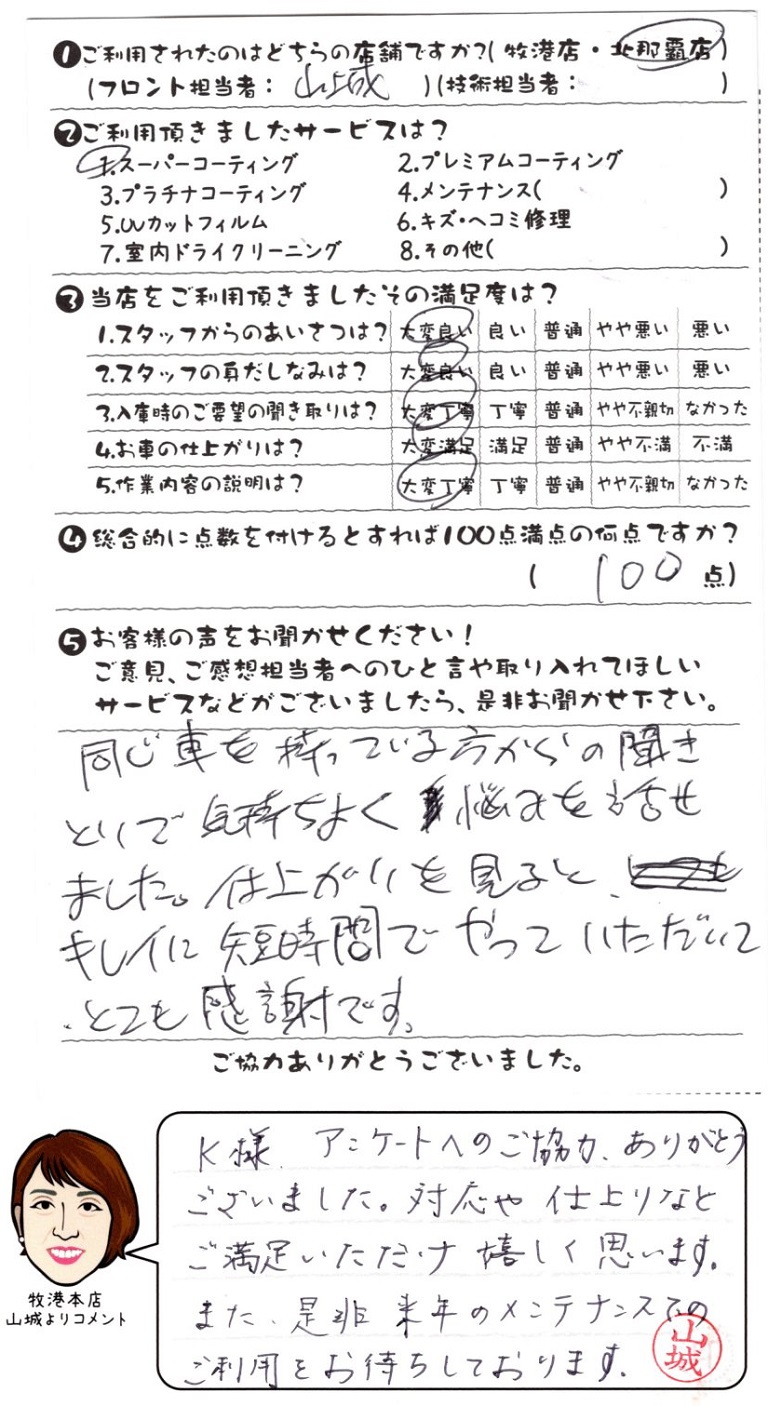 ❶ご利用されたのはどちらの店舗ですか?(牧港店・北那覇店)
(フロント担当者: 山城 )(技術担当者: )
❷ご利用頂きましたサービスは?
1.スーパーコーティング 2.プレミアムコーティング
3.プラチナコーティング 4.メンテナンス( )
5.UVカットフィルム 6.キズ・ヘコミ修理
7.室内ドライクリーニング 8.その他( )
❸当店をご利用頂きましたその満足度は?
1.スタッフからのあいさつは? 大変良い 良い 普通 やや悪い 悪い
2.スタッフの身だしなみは? 大変良い 良い 普通 やや悪い 悪い
3.入庫時のご要望の聞き取りは? 大変丁寧 丁寧 普通 やや不親切 なかった
4.お車の仕上がりは? 大変満足 満足 普通 やや不満 不満
5.作業内容の説明は? 大変丁寧 丁寧 普通 やや不親切 なかった
❹総合的に点数を付けるとすれば100点満点の何点ですか?
( 100 点)
❺お客様の声をお聞かせください!
ご意見、ご感想担当者へのひと言や取り入れてほしい
サービスなどがございましたら、是非お聞かせ下さい。
同じ車を持っている方からの聞き
とりで気持ちよく悩みを話せ
ました。仕上がりを見ると、
キレイに短時間でやっていただいて
とても感謝です。
ご協力ありがとうございました。
K様、アンケートへのご協力、ありがとう
ございました。対応や仕上りなど
ご満足いただけ嬉しく思います。
また、是非来年のメンテナンスでの
ご利用をお待ちしております。
山城
牧港本店
山城よりコメント